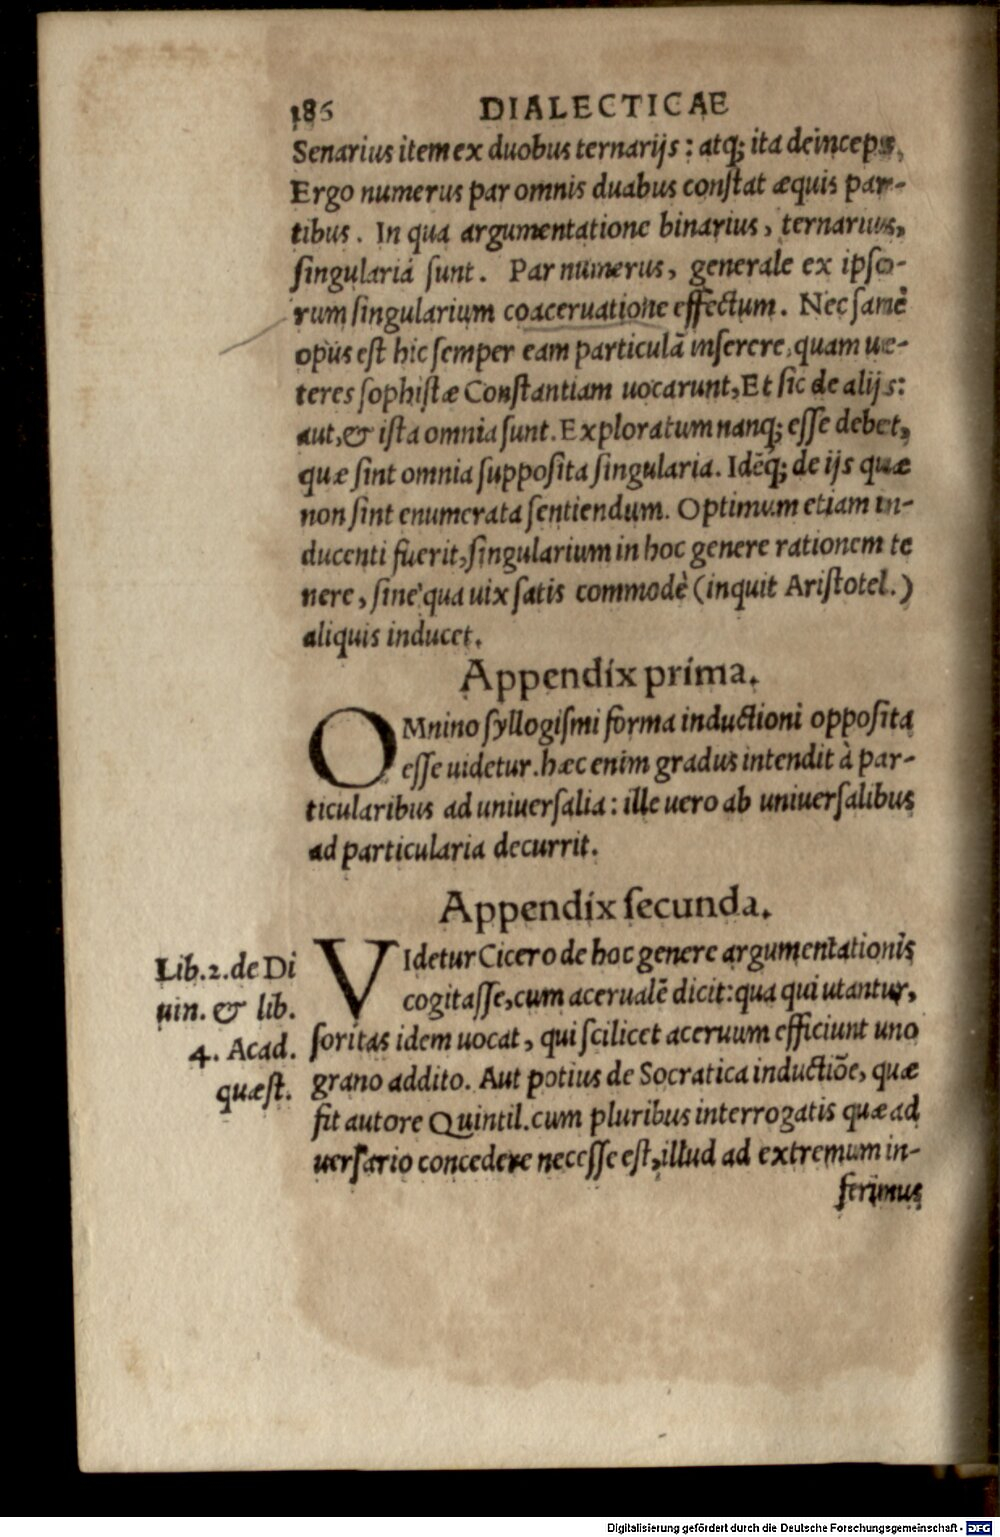 186 DIALECTICAE
Senarius item ex duobus ternarijs : atq; ita deinceps.
Ergo numerus par omnis duabus conſtat æquis par-
tibus . In qua argumentatione binarius , ternarius,
ſingularia ſunt . Par numerus , generale ex ipſo-
rum ſingularium coaceruatione effectum . Nec ſanè
opus eſt hic ſemper eam particulā inſerere, quam ue-
teres ſophiſtæ Conſtantiam uocarunt, Et ſic de alijs:
aut, & iſta omnia ſunt. Exploratum nanq; eſſe debet,
quæ ſint omnia ſuppoſita ſingularia. Idēq; de ijs quæ
non ſint enumerata ſentiendum. Optimum etiam in-
ducenti fuerit, ſingularium in hoc genere rationem te
nere , ſine qua uix ſatis commodè (inquit Ariſtotel.)
aliquis inducet.
Appendix prima.
OMnino ſyllogiſmi forma inductioni oppoſita
eſſe uidetur. hæc enim gradus intendit à par-
ticularibus ad uniuerſalia : ille uero ab uniuerſalibus
ad particularia decurrit.
Appendix ſecunda.
VIdetur Cicero de hoc genere argumentationis
cogitaſſe, cum aceruale dicit: qua qui utantur,
ſoritas idem uocat , qui ſcilicet aceruum efficiunt uno
grano addito. Aut potius de Socratica inductiōe, quæ
fit autore Quintil. cum pluribus interrogatis quæ ad
uerſario concedere neceſſe eſt, illud ad extremum in-
ferimus
Lib. 2. de Di
uin. & lib.
4. Acad.
quæſt.
Digitalisierung gefördert durch die Deutsche Forschungsgemeinschaft - DFG